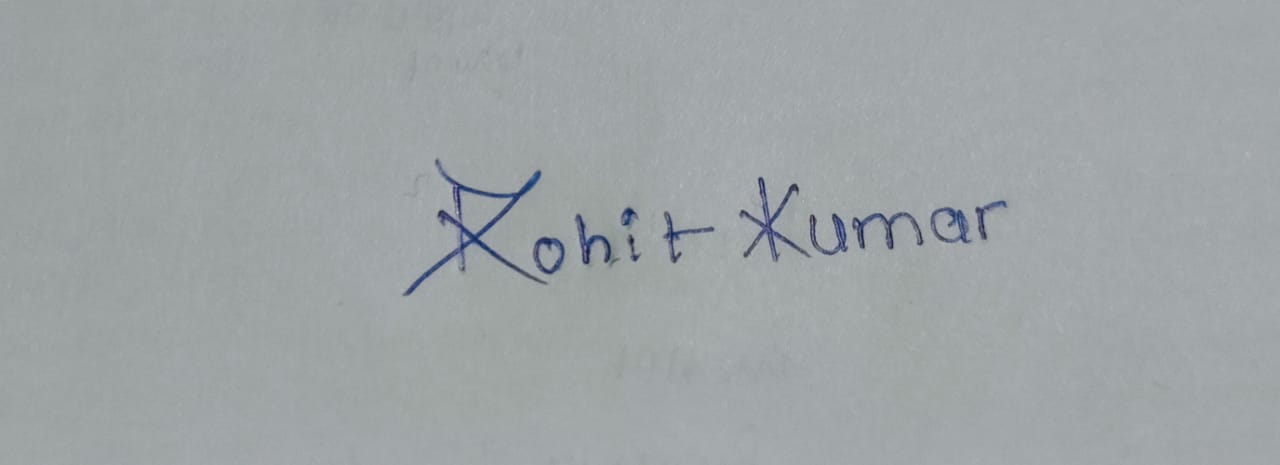 Rohit Kumar